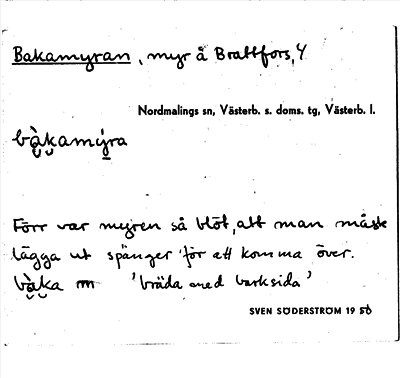 Bakamyran, myr å Brattfors, 4
Nordmalings sn, Västerb. s. doms. tg, Västerb. l.
bàkamýra
Förr var myren så blöt, att man måste
lägga ut spänger för att komma över.
bàka m 'bräda med barksida'
SVEN SÖDERSTRÖM 19 56